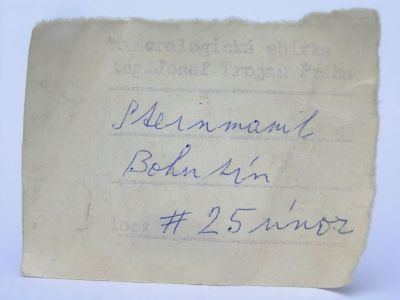 Mineralogická sbírka
Ing.Josef Trojan Praha
Steinmanit
Bohutín
# 25 únor